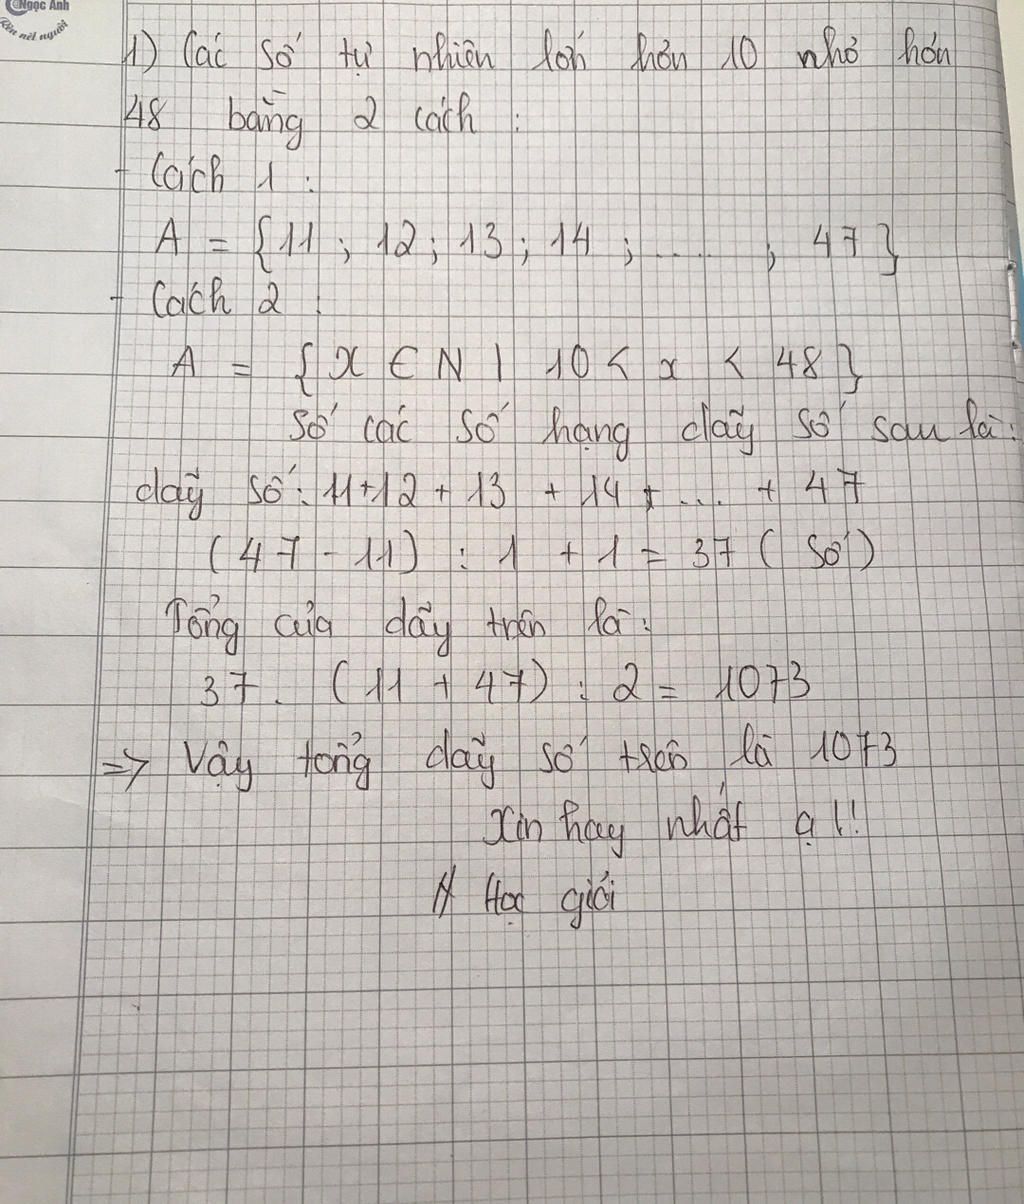 Ngọc Anh
Rèn nét người
1) Các số tự nhiên lớn hơn 10 nhỏ hơn
48 bằng 2 cách :
- Cách 1 :
A = {11 ; 12 ; 13 ; 14 ; .... ; 47}
- Cách 2 :
A = {x ∈ N | 10 < x < 48}
Số các số hạng dãy số sau là :
dãy số : 11+12 + 13 + 14 + ... + 47
(47 - 11) : 1 + 1 = 37 (số)
Tổng của dãy trên là :
37 . (11 + 47) : 2 = 1073
=> Vậy tổng dãy số trên là 1073
Xin hay nhất ạ !!
# Học giỏi